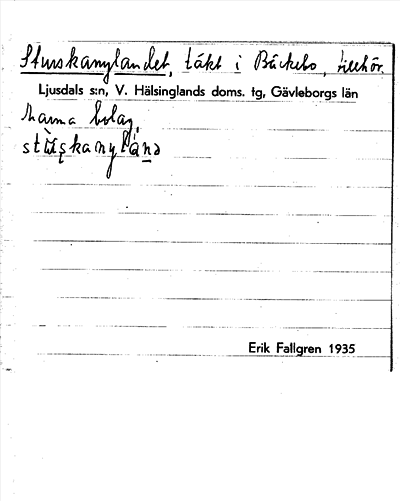 Sturskanylandet, täkt i Bäckebo, tillhör.
Ljusdals s:n, V. Hälsinglands doms. tg, Gävleborgs län
Marma bolag.
Erik Fallgren 1935